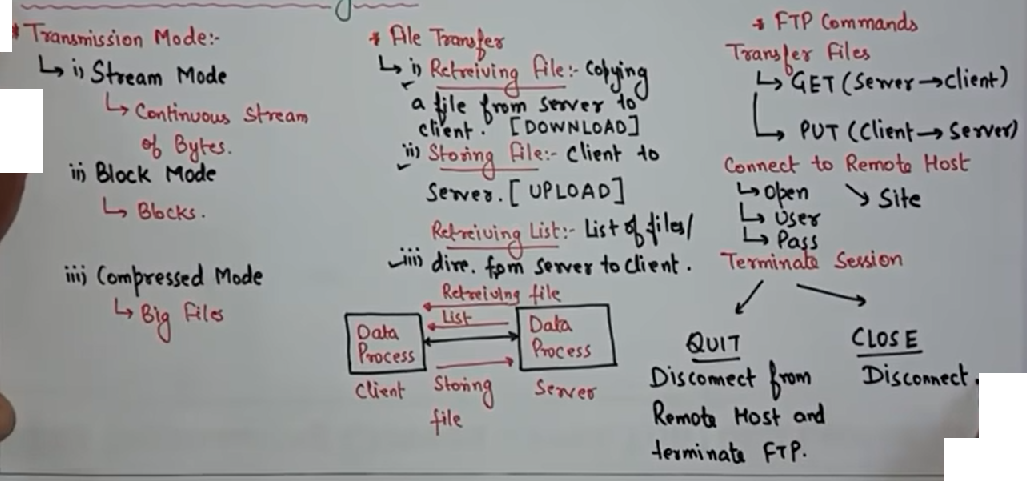 * Transmission Mode:-
↳ i) Stream Mode
↳ Continuous Stream
of Bytes.
ii) Block Mode
↳ Blocks.
iii) Compressed Mode
↳ Big Files
* File Transfer
↳ i) Retreiving File:- Copying
a file from server to
client. [DOWNLOAD]
ii) Storing File:- Client to
Server. [UPLOAD]
Retreiving List:- List of files/
iii) dire. from server to client.
Retreiving file
List
Data
Process
Data
Process
Client
Storing
file
Server
* FTP Commands
Transfer Files
↳ GET (Server → Client)
↳ PUT (Client → Server)
Connect to Remote Host
↳ Open
↘ Site
↳ User
↳ Pass
Terminate Session
QUIT
Disconnect from
Remote Host and
terminate FTP.
CLOSE
Disconnect.